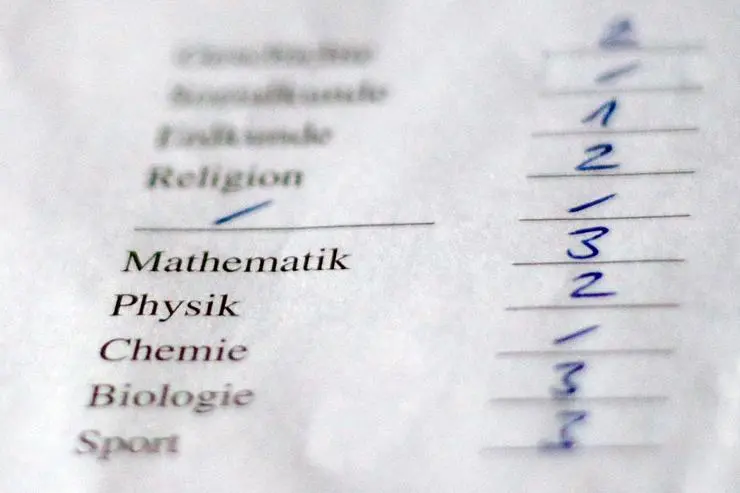 Geschichte 2
Sozialkunde /
Erdkunde 1
Religion 2
/ /
Mathematik 3
Physik 2
Chemie /
Biologie 3
Sport 3